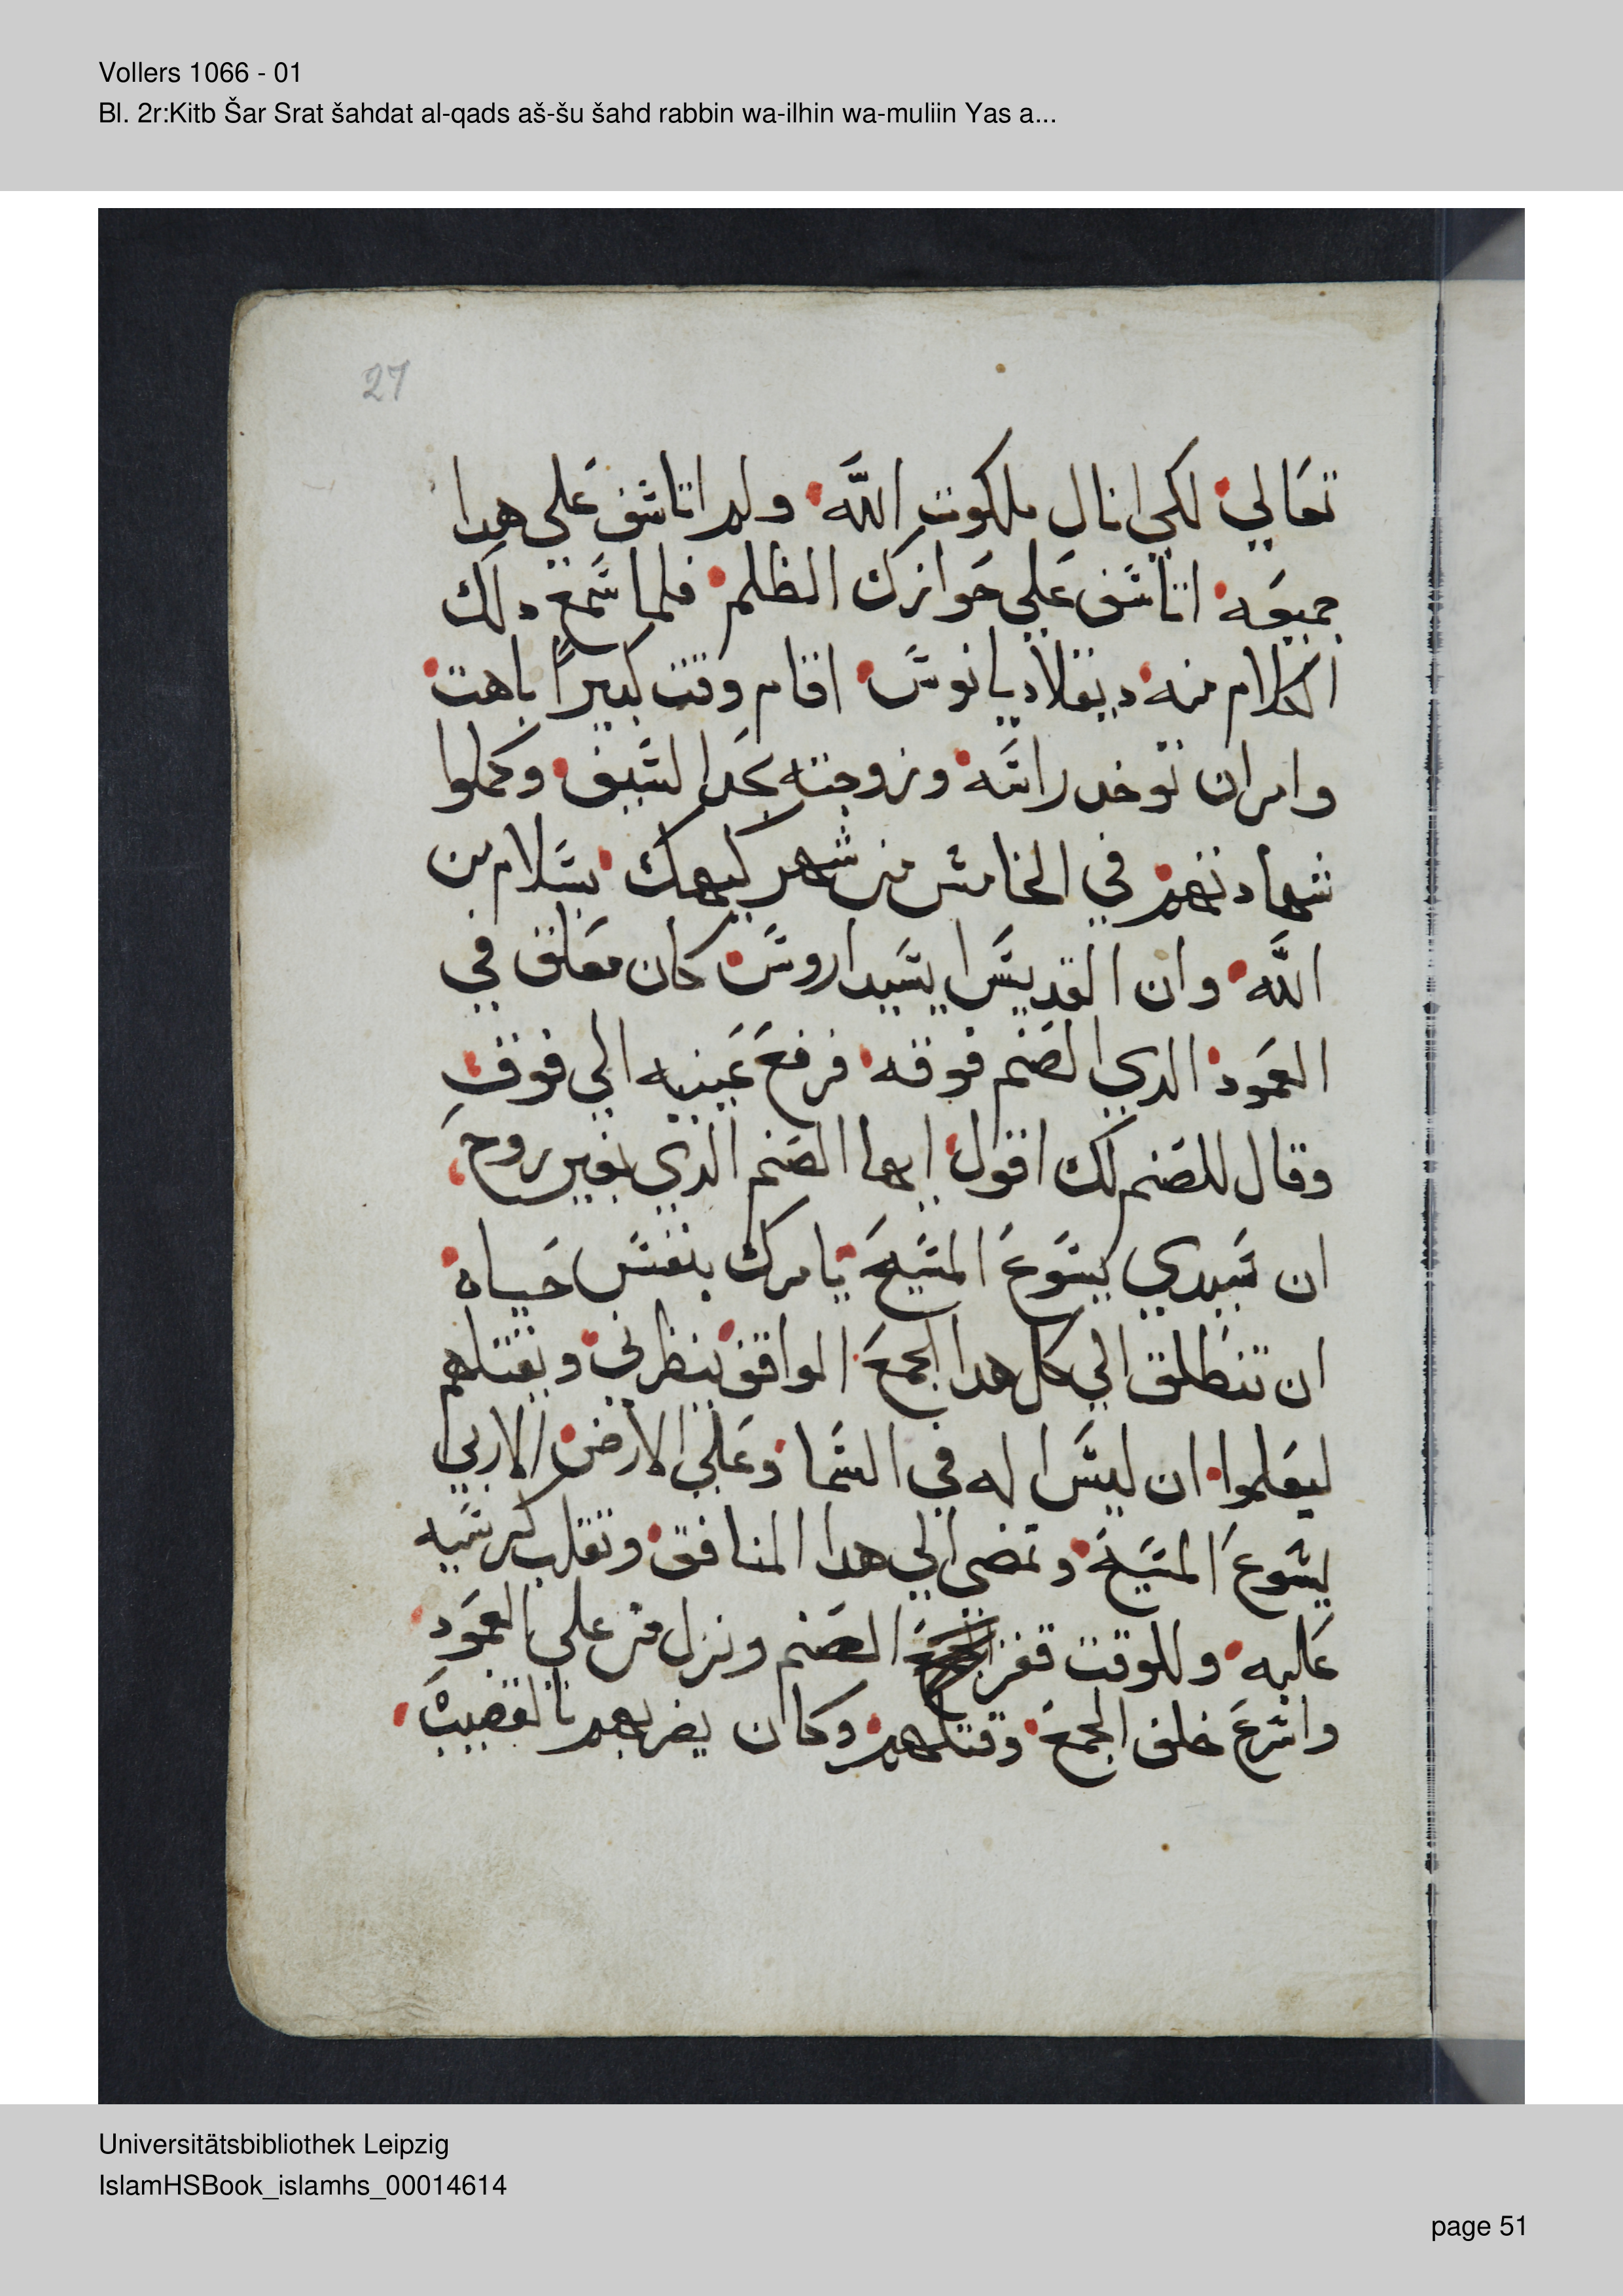 Vollers 1066 - 01
Bl. 2r:Kitb Šar Srat šahdat al-qads aš-šu šahd rabbin wa-ilhin wa-muliin Yas a...
27
تعالي لكي انال ملكوت الله ولم اتاشف علي هدا
جميعه اتاشف علي حوازك الظلم فلما شمع دلك
الكلام منه ديقلاديانوش اقام وقت كبيرًا باهت
وامر ان توخد راشه وزوجته بحد الشيف وكملوا
شهادتهم في الخامش من شهر كيهك بشلام من
الله وان القديش ايشيداروش كان معلق في
العمود الدي الصنم فوقه فرفع عينيه الي فوق
وقال للصنم لك اقول ايها الصنم الدي بغير روح
ان شيدي يشوع المشيح يامرك بنفش حياه
ان تنطلق الي كل هدا الجمع الواقف ينظرني وتقتلهم
ليعلموا ان ليش اله في الشما وعلي الارض الا ربي
يشوع المشيح وتمضي الي هدا المنافق وتقلب كرشيه
عليه وللوقت قفز الصنم ونزل من علي العمود
واشرع خلف الجمع وقتلهم وكان يضربهم بالقضيب
Universitätsbibliothek Leipzig
IslamHSBook_islamhs_00014614
page 51